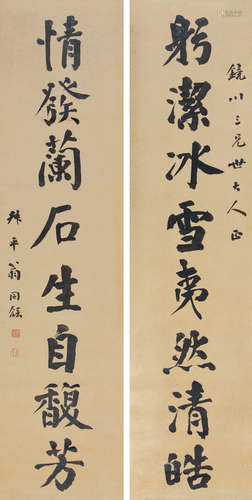 鏡川三兄世大人正
躬潔冰雪夷然清皓
情發蘭石生自馥芳
叔平翁同龢